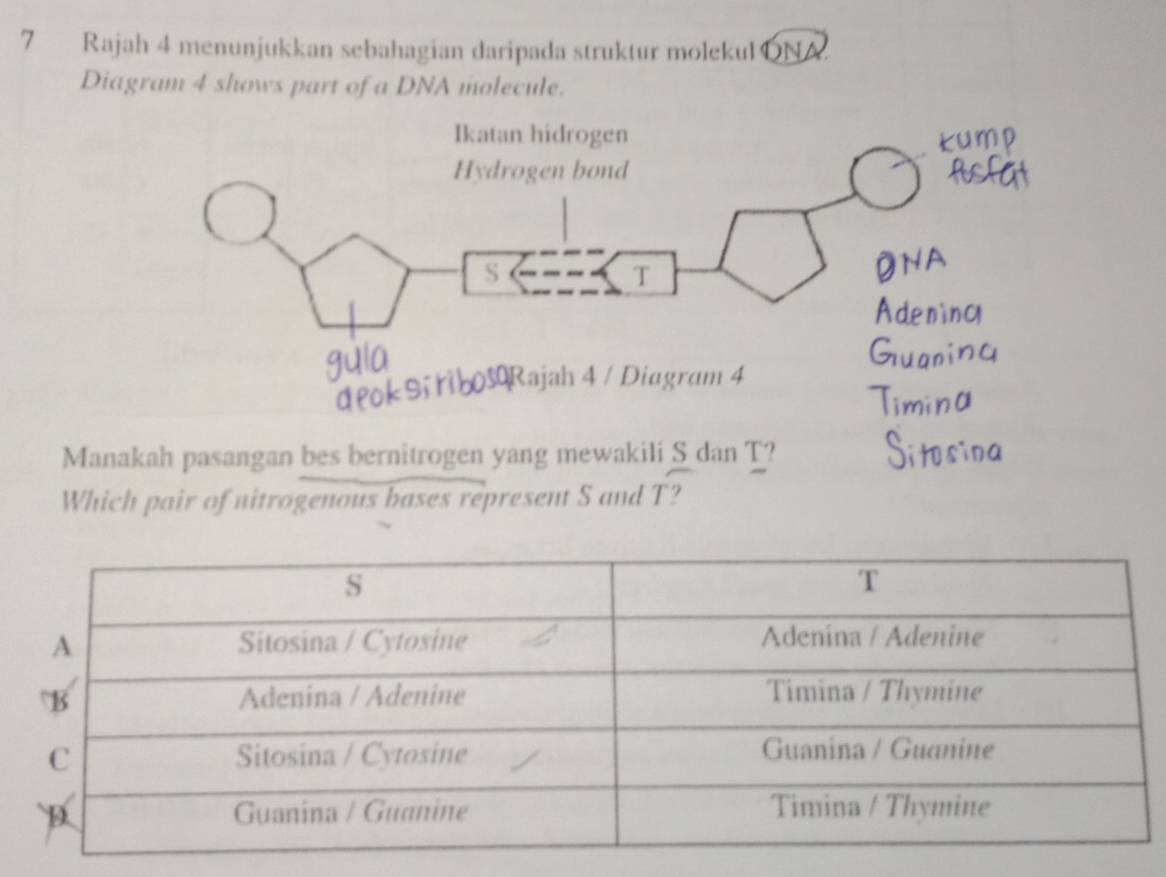 7 Rajah 4 menunjukkan sebahagian daripada struktur molekul DNA.
Diagram 4 shows part of a DNA molecule.
Ikatan hidrogen
Hydrogen bond
kump
fosfat
S
T
DNA
Adenina
Guanina
Timina
Sitosina
gula
deoksiribosa
Rajah 4 / Diagram 4
Manakah pasangan bes bernitrogen yang mewakili S dan T?
Which pair of nitrogenous bases represent S and T?
S T
A Sitosina / Cytosine Adenina / Adenine
B Adenina / Adenine Timina / Thymine
C Sitosina / Cytosine Guanina / Guanine
D Guanina / Guanine Timina / Thymine